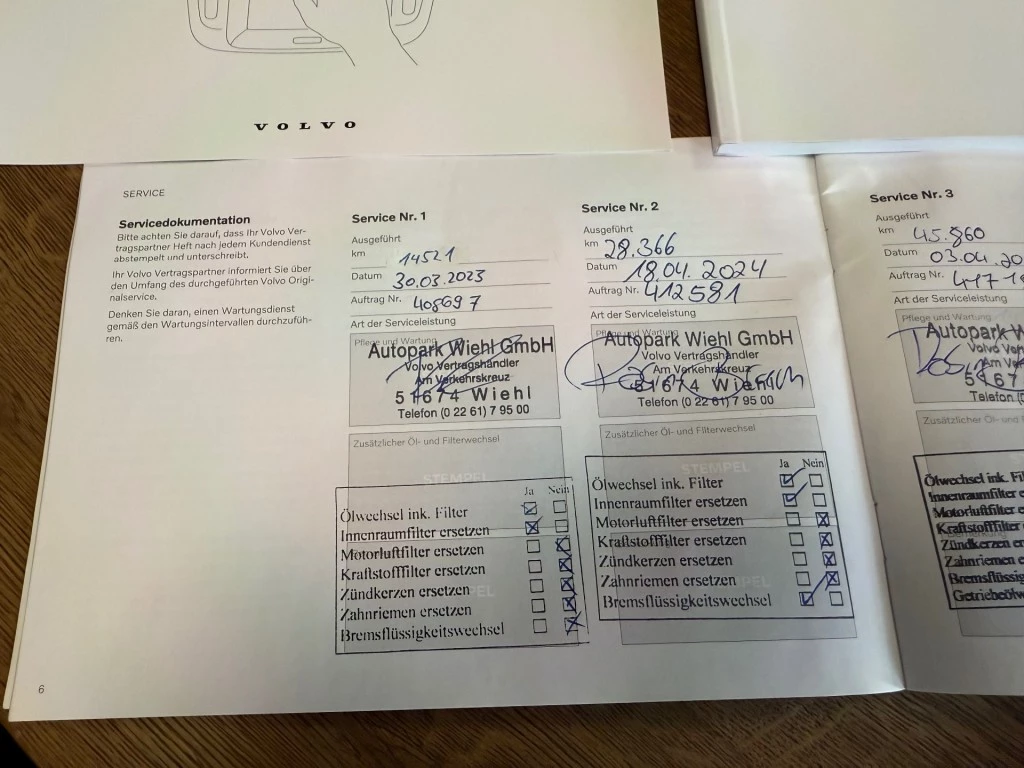 VOLVO
SERVICE
Servicedokumentation
Bitte achten Sie darauf, dass Ihr Volvo Ver-
tragspartner Heft nach jedem Kundendienst
abstempelt und unterschreibt.
Ihr Volvo Vertragspartner informiert Sie über
den Umfang des durchgeführten Volvo Origi-
nalservice.
Denken Sie daran, einen Wartungsdienst
gemäß den Wartungsintervallen durchzufüh-
ren.
6
Service Nr. 1
Ausgeführt
km 14521
Datum 30.03.2023
Auftrag Nr. 408697
Art der Serviceleistung
Pflege und Wartung
Autopark Wiehl GmbH
Volvo Vertragshändler
Am Verkehrskreuz
51674 Wiehl
Telefon (0 22 61) 7 95 00
Zusätzlicher Öl- und Filterwechsel
STEMPEL
Ja Nein
Ölwechsel ink. Filter
Innenraumfilter ersetzen
Motorluftfilter ersetzen
Kraftstofffilter ersetzen
Zündkerzen ersetzen
Zahnriemen ersetzen
Bremsflüssigkeitswechsel
Service Nr. 2
Ausgeführt
km 28.366
Datum 18.04.2024
Auftrag Nr. 412581
Art der Serviceleistung
Pflege und Wartung
Autopark Wiehl GmbH
Volvo Vertragshändler
Am Verkehrskreuz
51674 Wiehl
Telefon (0 22 61) 7 95 00
Zusätzlicher Öl- und Filterwechsel
STEMPEL
Ja Nein
Ölwechsel ink. Filter
Innenraumfilter ersetzen
Motorluftfilter ersetzen
Kraftstofffilter ersetzen
Zündkerzen ersetzen
Zahnriemen ersetzen
Bremsflüssigkeitswechsel
Service Nr. 3
Ausgeführt
km 45.860
Datum 03.04.20
Auftrag Nr. 417
Art der Serviceleistung
Pflege und Wartung
Autopark
Volvo
Am
Telefon (0
Zusätzlicher Öl- und
Ölwechsel ink.
Innenraumfilter
Motorluftfilter
Kraftstofffilter
Zündkerzen
Zahnriemen